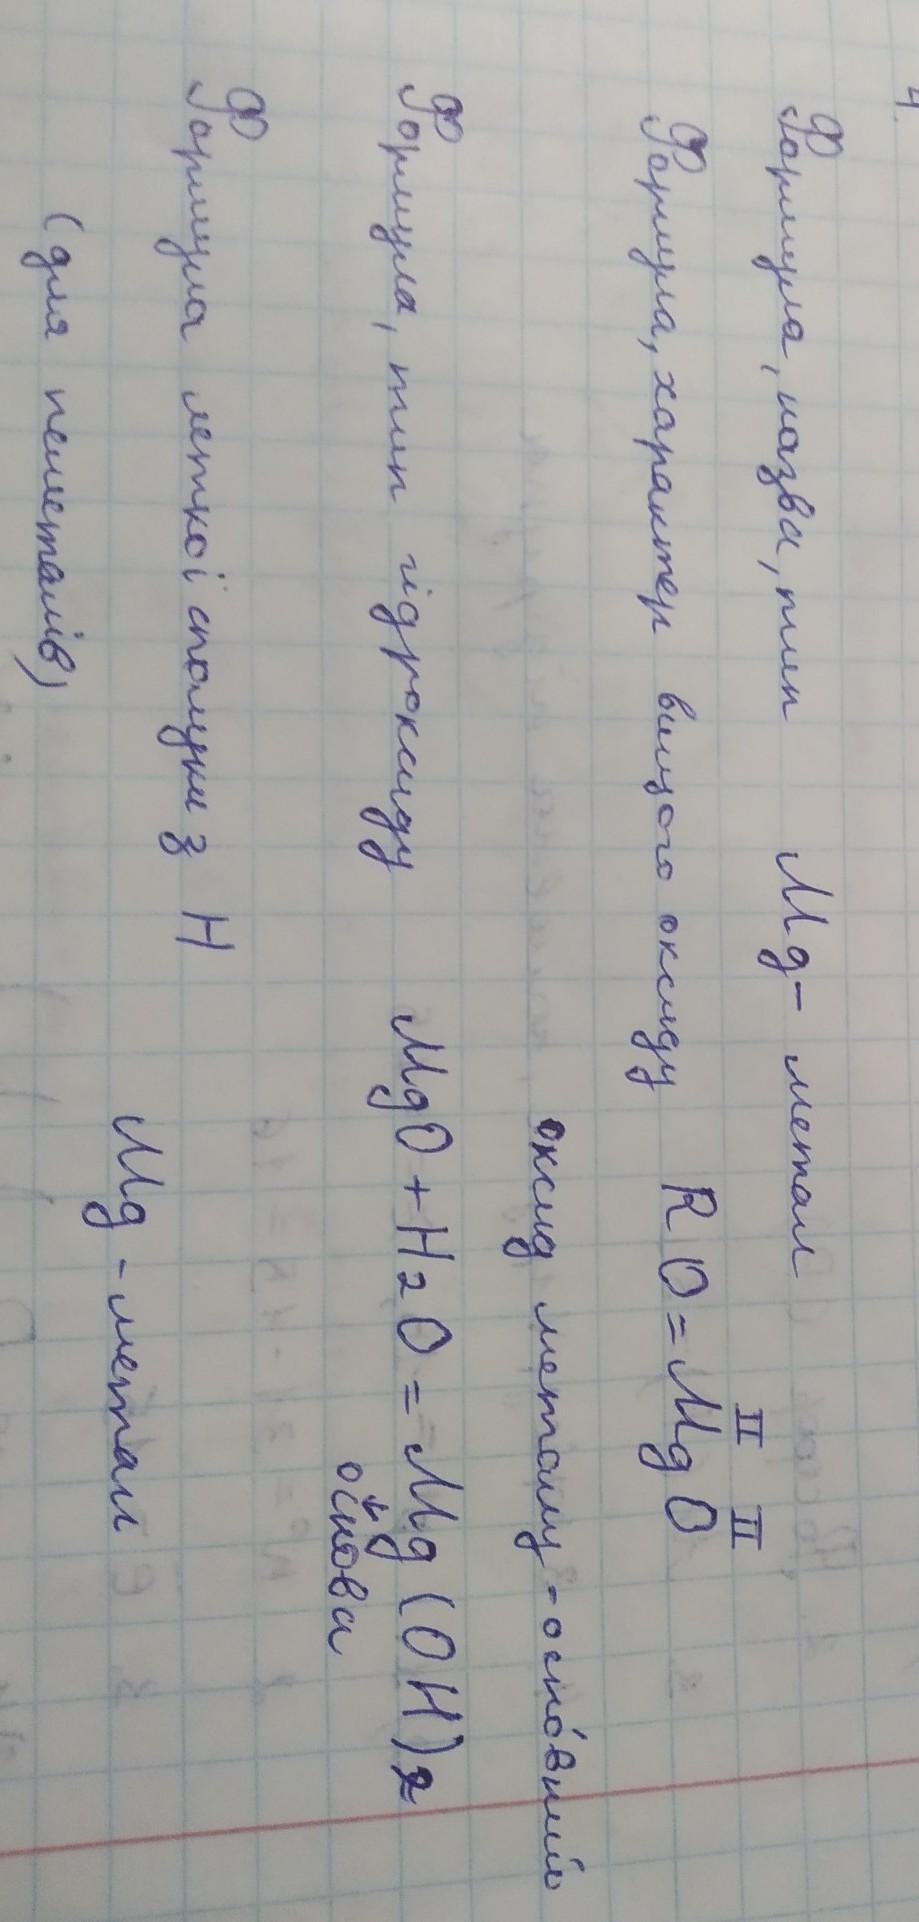 4.
Формула, назва, тип Mg - метал
II II
Формула, характер вищого оксиду RO = MgO
оксид металу - осно́вний
Формула, тип гідроксиду MgO + H2O = Mg(OH)2
↓
основа
Формула леткої сполуки з H
Mg - метал
(для неметалів)